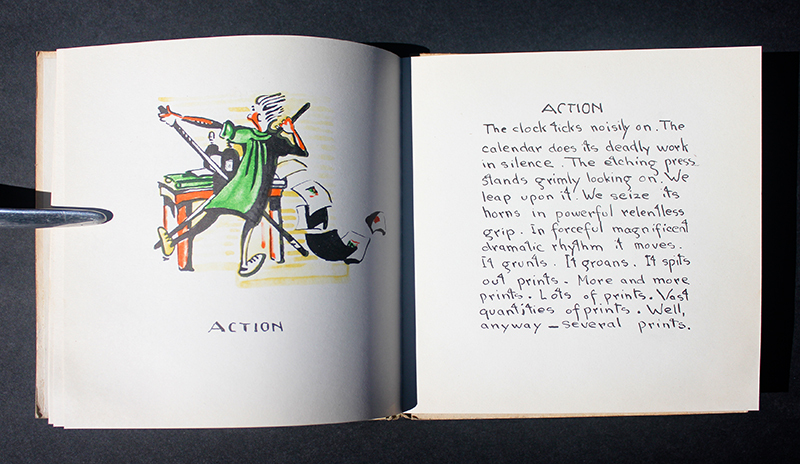 ACTION
ACTION
The clock ticks noisily on. The
calendar does its deadly work
in silence. The etching press
stands grimly looking on. We
leap upon it. We seize its
horns in powerful relentless
grip. In forceful magnificent
dramatic rhythm it moves.
It grunts. It groans. It spits
out prints. More and more
prints. Lots of prints. Vast
quantities of prints. Well,
anyway — several prints.